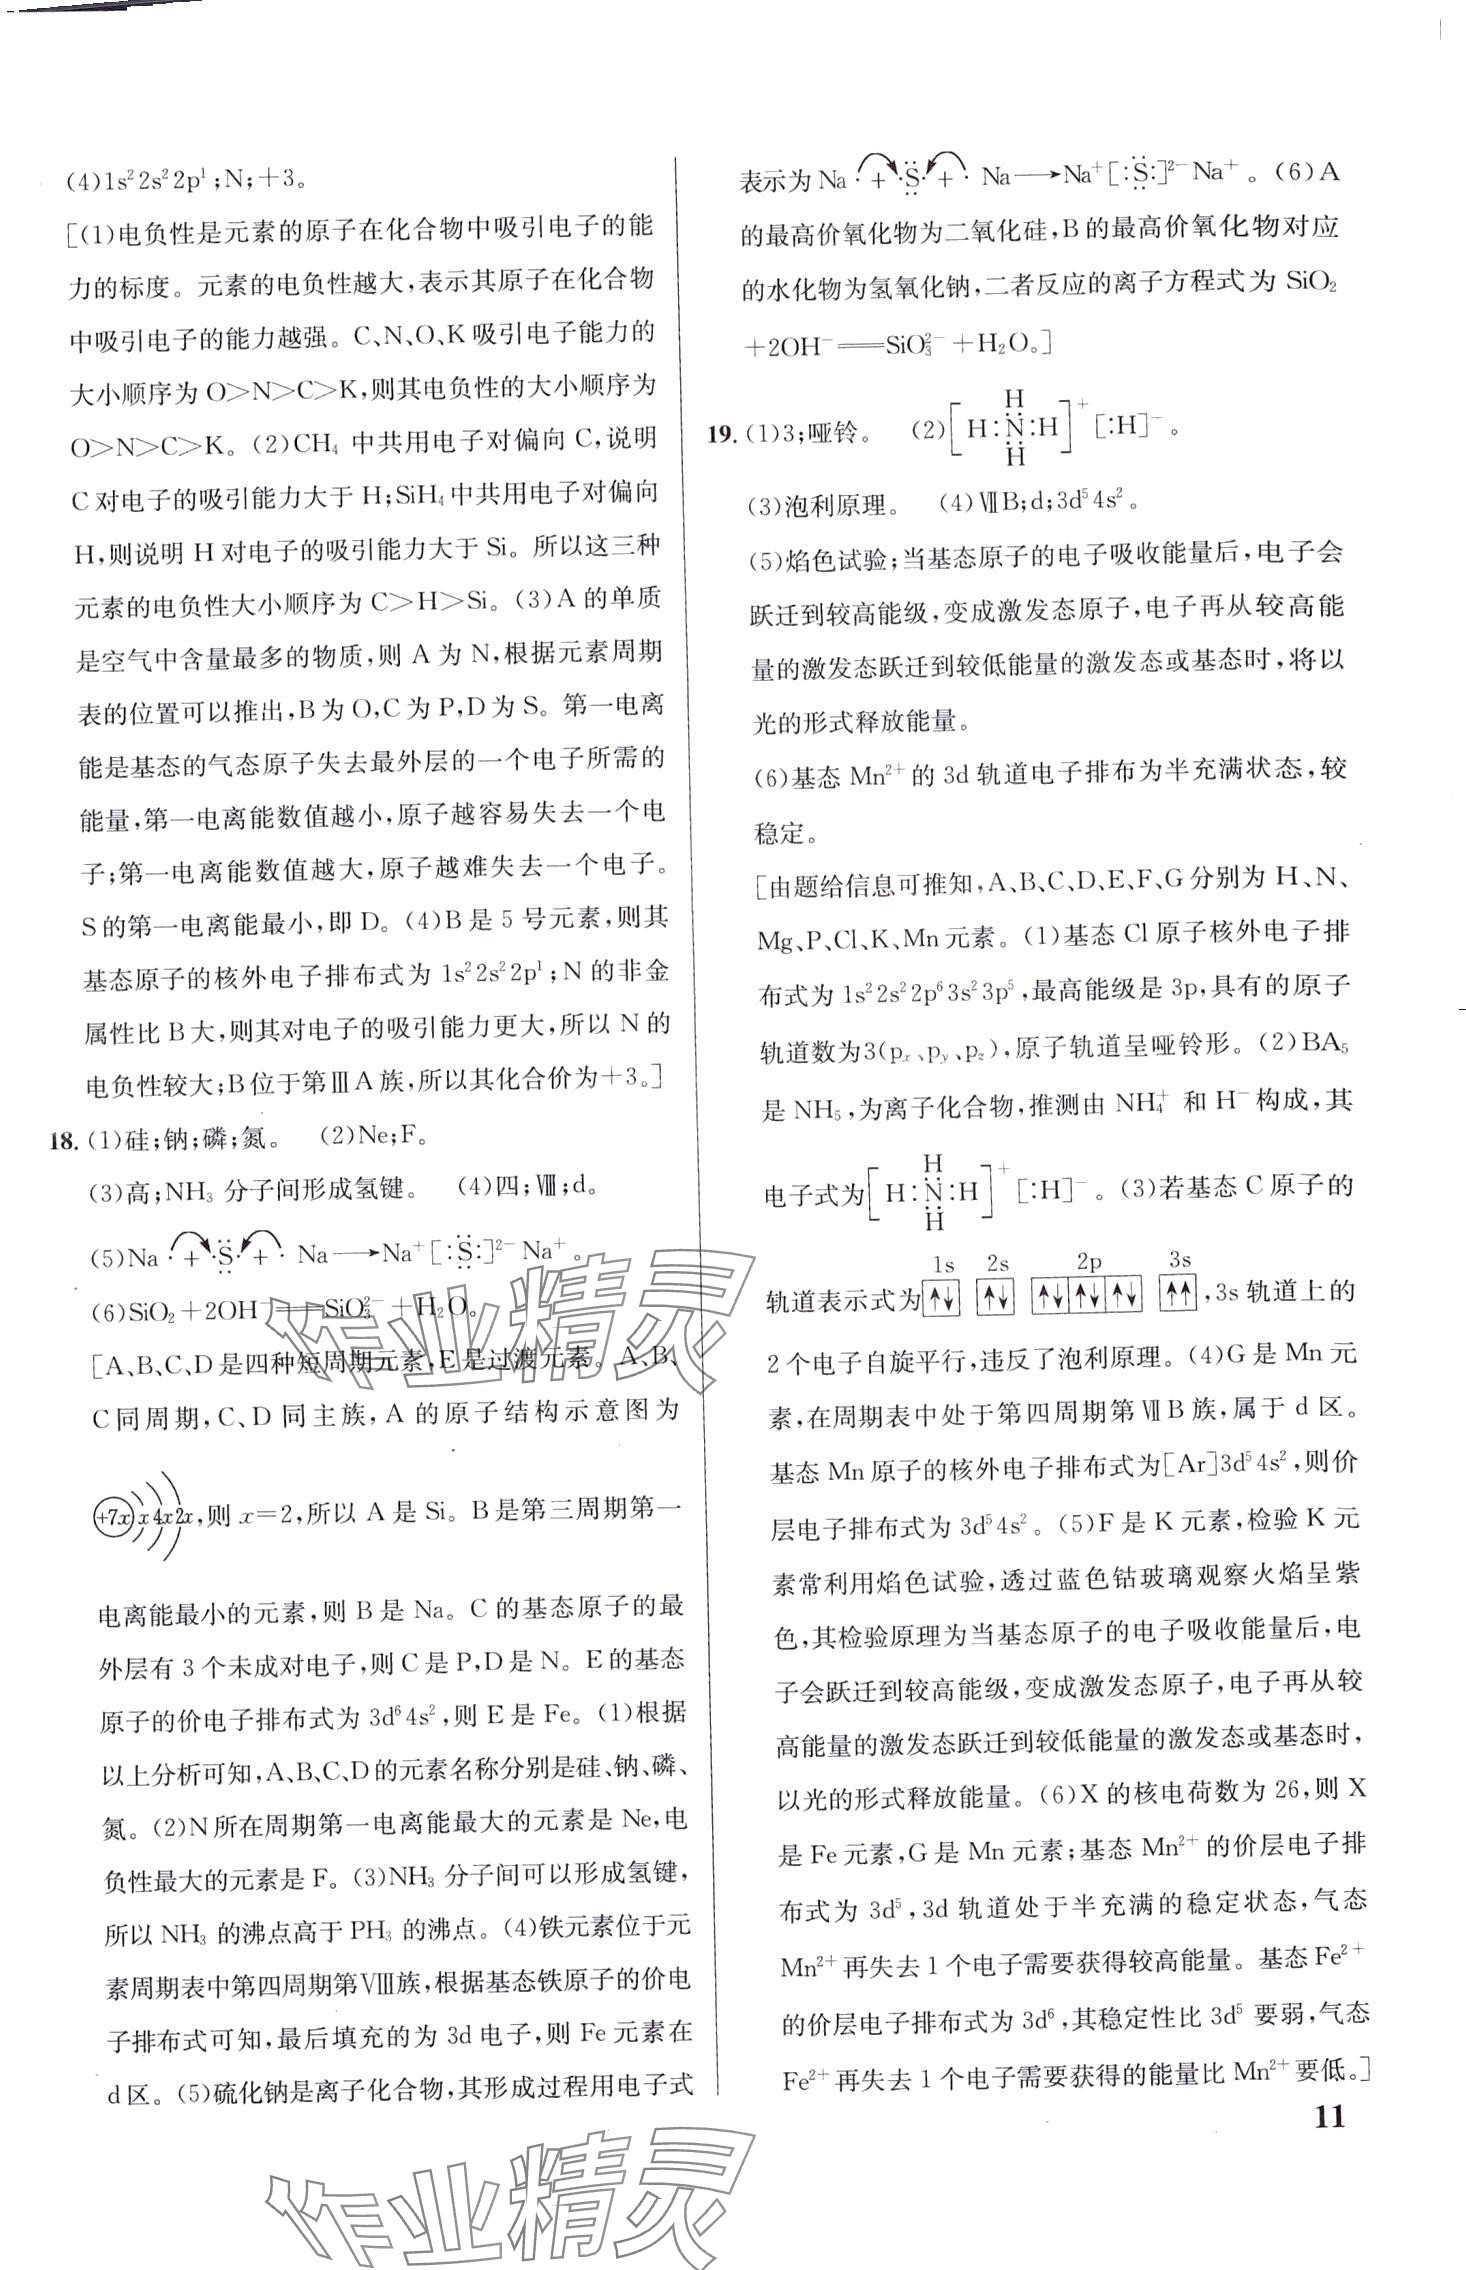 (4)1s²2s²2p¹;N;+3。
[(1)电负性是元素的原子在化合物中吸引电子的能
力的标度。元素的电负性越大,表示其原子在化合物
中吸引电子的能力越强。C、N、O、K吸引电子能力的
大小顺序为O>N>C>K,则其电负性的大小顺序为
O>N>C>K。(2)CH₄中共用电子对偏向C,说明
C对电子的吸引能力大于H;SiH₄中共用电子对偏向
H,则说明H对电子的吸引能力大于Si。所以这三种
元素的电负性大小顺序为C>H>Si。(3)A的单质
是空气中含量最多的物质,则A为N,根据元素周期
表的位置可以推出,B为O,C为P,D为S。第一电离
能是基态的气态原子失去最外层的一个电子所需的
能量,第一电离能数值越小,原子越容易失去一个电
子;第一电离能数值越大,原子越难失去一个电子。
S的第一电离能最小,即D。(4)B是5号元素,则其
基态原子的核外电子排布式为1s²2s²2p¹;N的非金
属性比B大,则其对电子的吸引能力更大,所以N的
电负性较大;B位于第ⅢA族,所以其化合价为+3。]
18.(1)硅;钠;磷;氮。 (2)Ne;F。
(3)高;NH₃分子间形成氢键。 (4)四;Ⅷ;d。
(5)Na·+·S·+·Na⟶Na⁺[:S:]²⁻Na⁺。
(6)SiO₂+2OH⁻══SiO₃²⁻+H₂O。
[A、B、C、D是四种短周期元素,E是过渡元素。A、B、
C同周期,C、D同主族,A的原子结构示意图为
+7x x 4x 2x,则x=2,所以A是Si。B是第三周期第一
电离能最小的元素,则B是Na。C的基态原子的最
外层有3个未成对电子,则C是P,D是N。E的基态
原子的价电子排布式为3d⁶4s²,则E是Fe。(1)根据
以上分析可知,A、B、C、D的元素名称分别是硅、钠、磷、
氮。(2)N所在周期第一电离能最大的元素是Ne,电
负性最大的元素是F。(3)NH₃分子间可以形成氢键,
所以NH₃的沸点高于PH₃的沸点。(4)铁元素位于元
素周期表中第四周期第Ⅷ族,根据基态铁原子的价电
子排布式可知,最后填充的为3d电子,则Fe元素在
d区。(5)硫化钠是离子化合物,其形成过程用电子式
表示为Na·+·S·+·Na⟶Na⁺[:S:]²⁻Na⁺。(6)A
的最高价氧化物为二氧化硅,B的最高价氧化物对应
的水化物为氢氧化钠,二者反应的离子方程式为SiO₂
+2OH⁻══SiO₃²⁻+H₂O。]
H
19.(1)3;哑铃。 (2)[H:N:H]⁺[:H]⁻。
H
(3)泡利原理。 (4)ⅦB;d;3d⁵4s²。
(5)焰色试验;当基态原子的电子吸收能量后,电子会
跃迁到较高能级,变成激发态原子,电子再从较高能
量的激发态跃迁到较低能量的激发态或基态时,将以
光的形式释放能量。
(6)基态Mn²⁺的3d轨道电子排布为半充满状态,较
稳定。
[由题给信息可推知,A、B、C、D、E、F、G分别为H、N、
Mg、P、Cl、K、Mn元素。(1)基态Cl原子核外电子排
布式为1s²2s²2p⁶3s²3p⁵,最高能级是3p,具有的原子
轨道数为3(pₓ、p_y、p_z),原子轨道呈哑铃形。(2)BA₅
是NH₅,为离子化合物,推测由NH₄⁺和H⁻构成,其
H
电子式为[H:N:H]⁺[:H]⁻。(3)若基态C原子的
H
1s 2s 2p 3s
轨道表示式为[↑↓] [↑↓] [↑↓|↑↓|↑↓] [↑↑],3s轨道上的
2个电子自旋平行,违反了泡利原理。(4)G是Mn元
素,在周期表中处于第四周期第ⅦB族,属于d区。
基态Mn原子的核外电子排布式为[Ar]3d⁵4s²,则价
层电子排布式为3d⁵4s²。(5)F是K元素,检验K元
素常利用焰色试验,透过蓝色钴玻璃观察火焰呈紫
色,其检验原理为当基态原子的电子吸收能量后,电
子会跃迁到较高能级,变成激发态原子,电子再从较
高能量的激发态跃迁到较低能量的激发态或基态时,
以光的形式释放能量。(6)X的核电荷数为26,则X
是Fe元素,G是Mn元素;基态Mn²⁺的价层电子排
布式为3d⁵,3d轨道处于半充满的稳定状态,气态
Mn²⁺再失去1个电子需要获得较高能量。基态Fe²⁺
的价层电子排布式为3d⁶,其稳定性比3d⁵要弱,气态
Fe²⁺再失去1个电子需要获得的能量比Mn²⁺要低。]
11
作业精灵
作业精灵